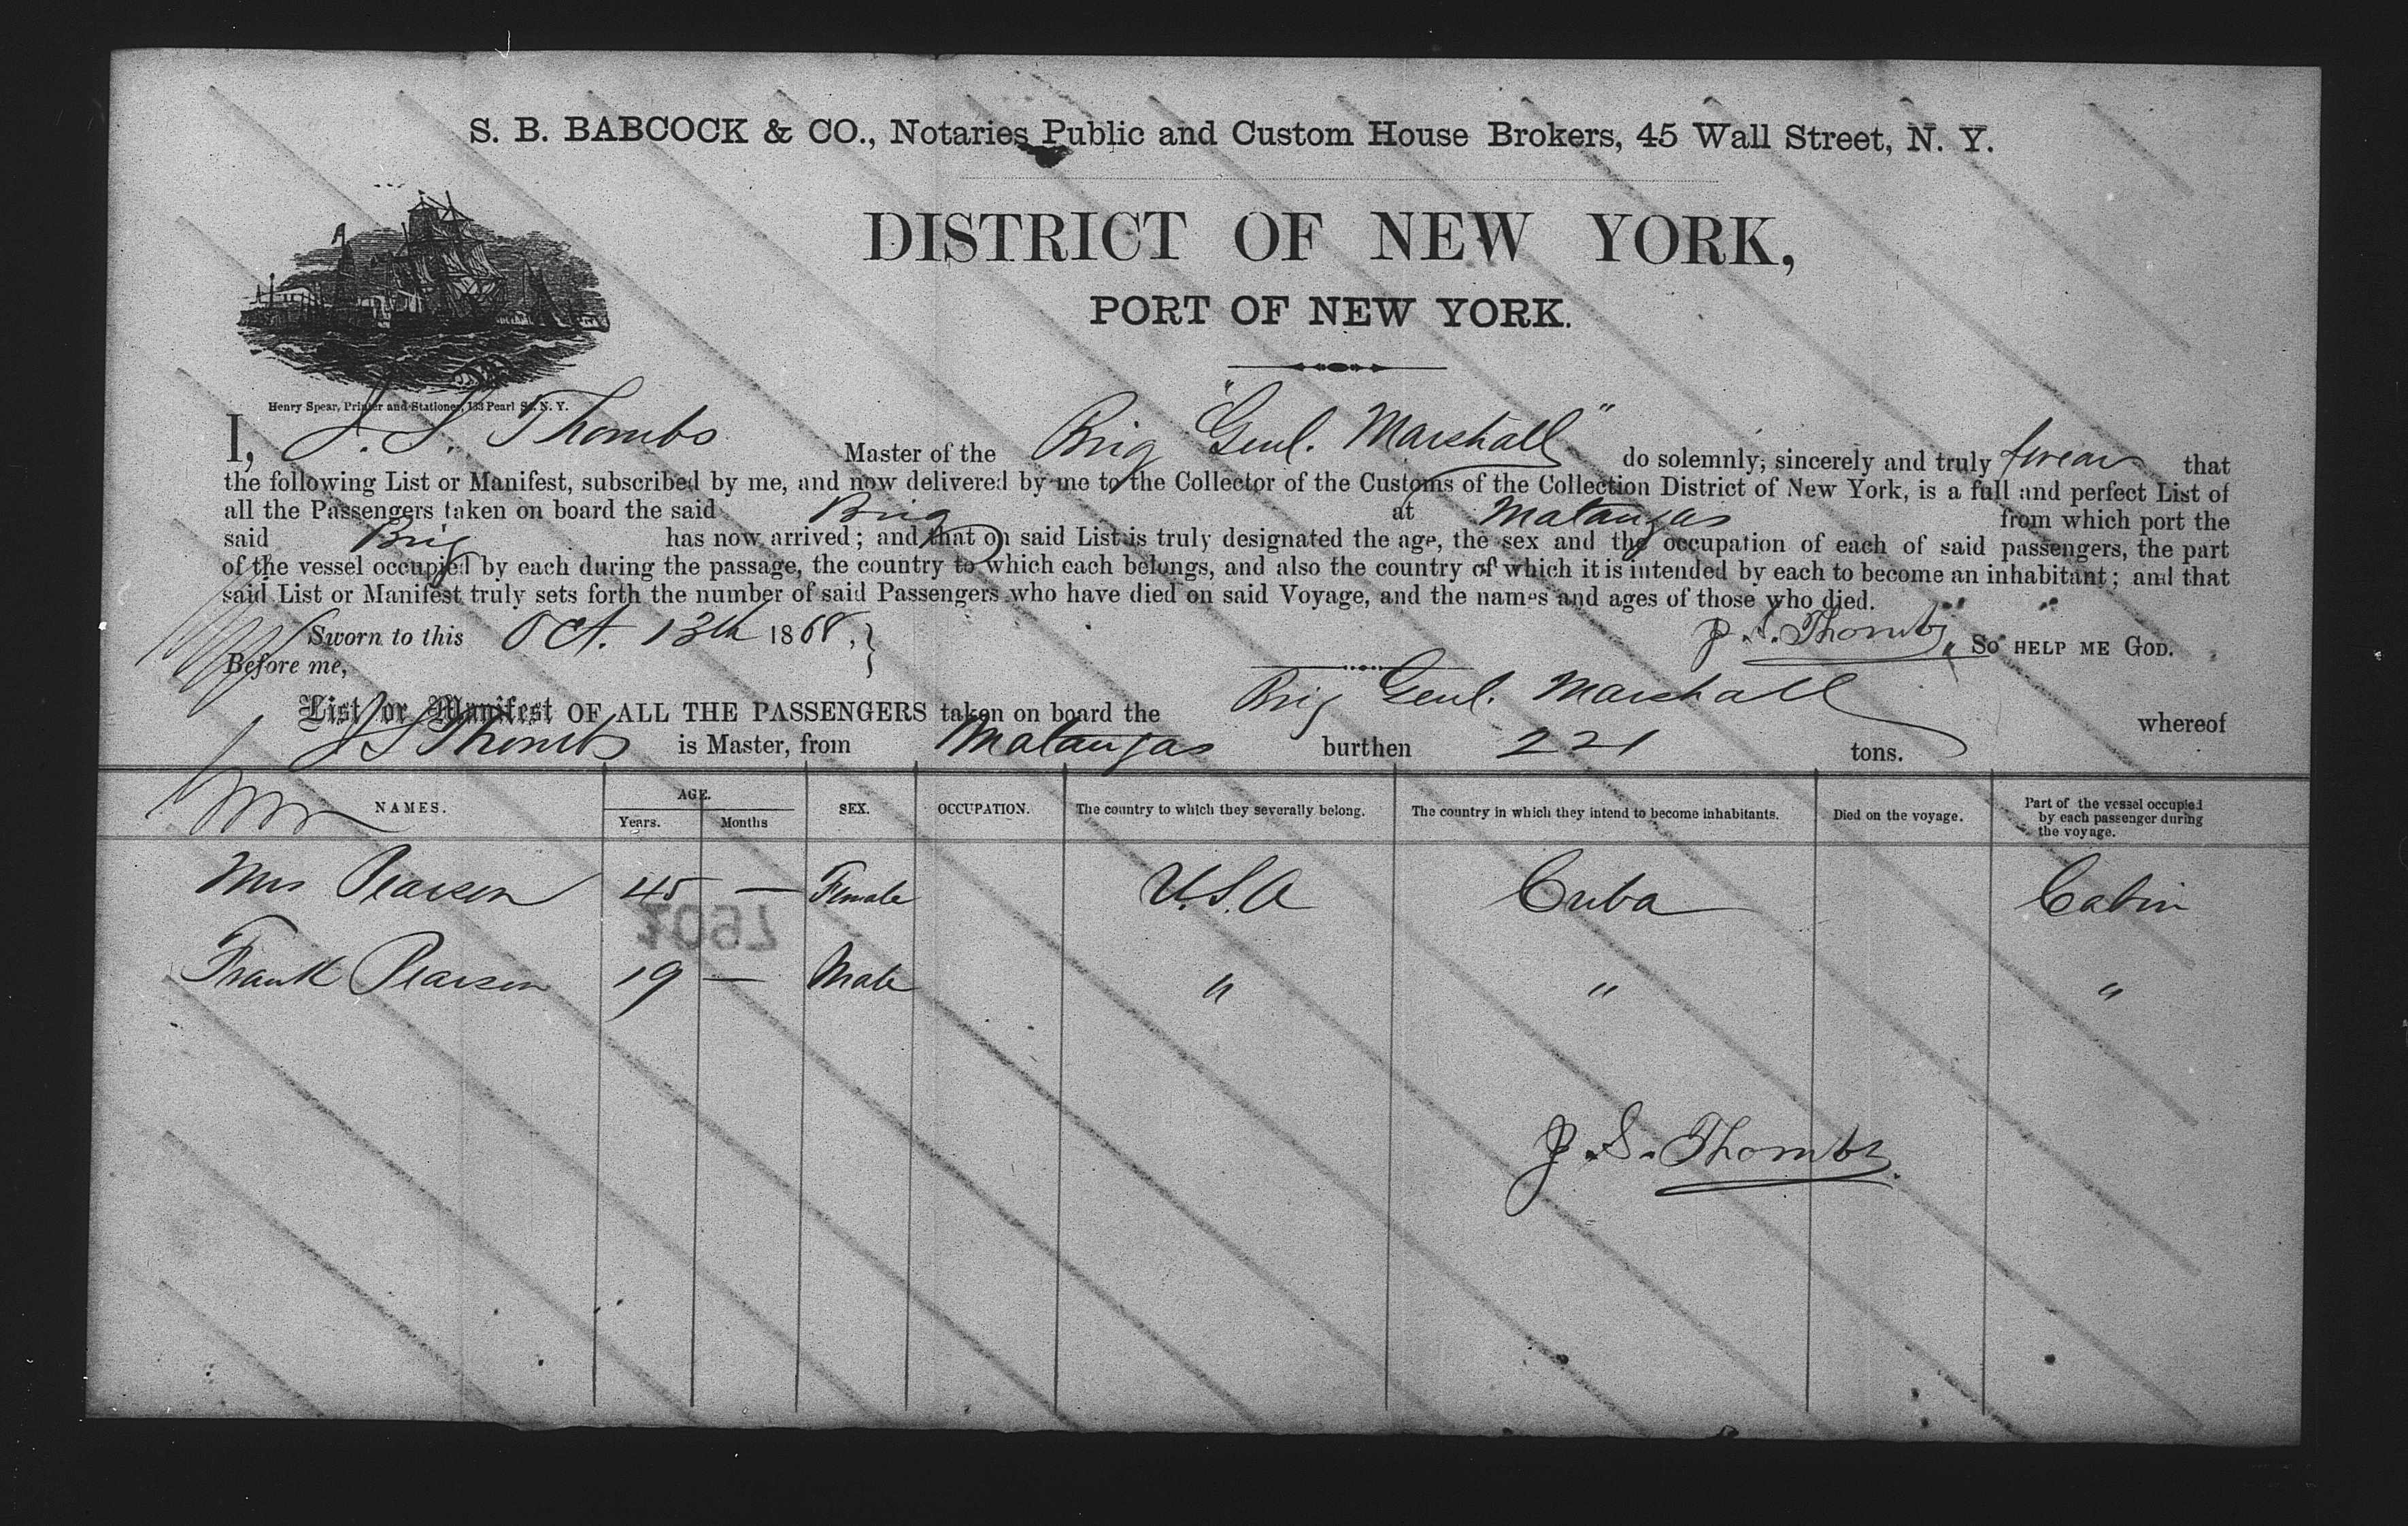 S. B. BABCOCK & CO., Notaries Public and Custom House Brokers, 45 Wall Street, N. Y.
DISTRICT OF NEW YORK,
PORT OF NEW YORK.
Henry Spear, Printer and Stationer, 133 Pearl St. N. Y.
I, J. S. Thombs Master of the Brig "Genl. Marshall" do solemnly, sincerely and truly swear that
the following List or Manifest, subscribed by me, and now delivered by me to the Collector of the Customs of the Collection District of New York, is a full and perfect List of
all the Passengers taken on board the said Brig at Matanzas from which port the
said Brig has now arrived; and that on said List is truly designated the age, the sex and the occupation of each of said passengers, the part
of the vessel occupied by each during the passage, the country to which each belongs, and also the country of which it is intended by each to become an inhabitant; and that
said List or Manifest truly sets forth the number of said Passengers who have died on said Voyage, and the names and ages of those who died.
Sworn to this Oct. 13th 1868, J. S. Thombs, SO HELP ME GOD.
Before me,
List or Manifest OF ALL THE PASSENGERS taken on board the Brig Genl. Marshall whereof
J S Thombs is Master, from Matanzas burthen 221 tons.
NAMES. AGE. Years. Months SEX. OCCUPATION. The country to which they severally belong. The country in which they intend to become inhabitants. Died on the voyage. Part of the vessel occupied by each passenger during the voyage.
Mrs Pearson 45 — Female U.S.A Cuba Cabin
Frank Pearson 19 — Male " " "
J. S. Thombs